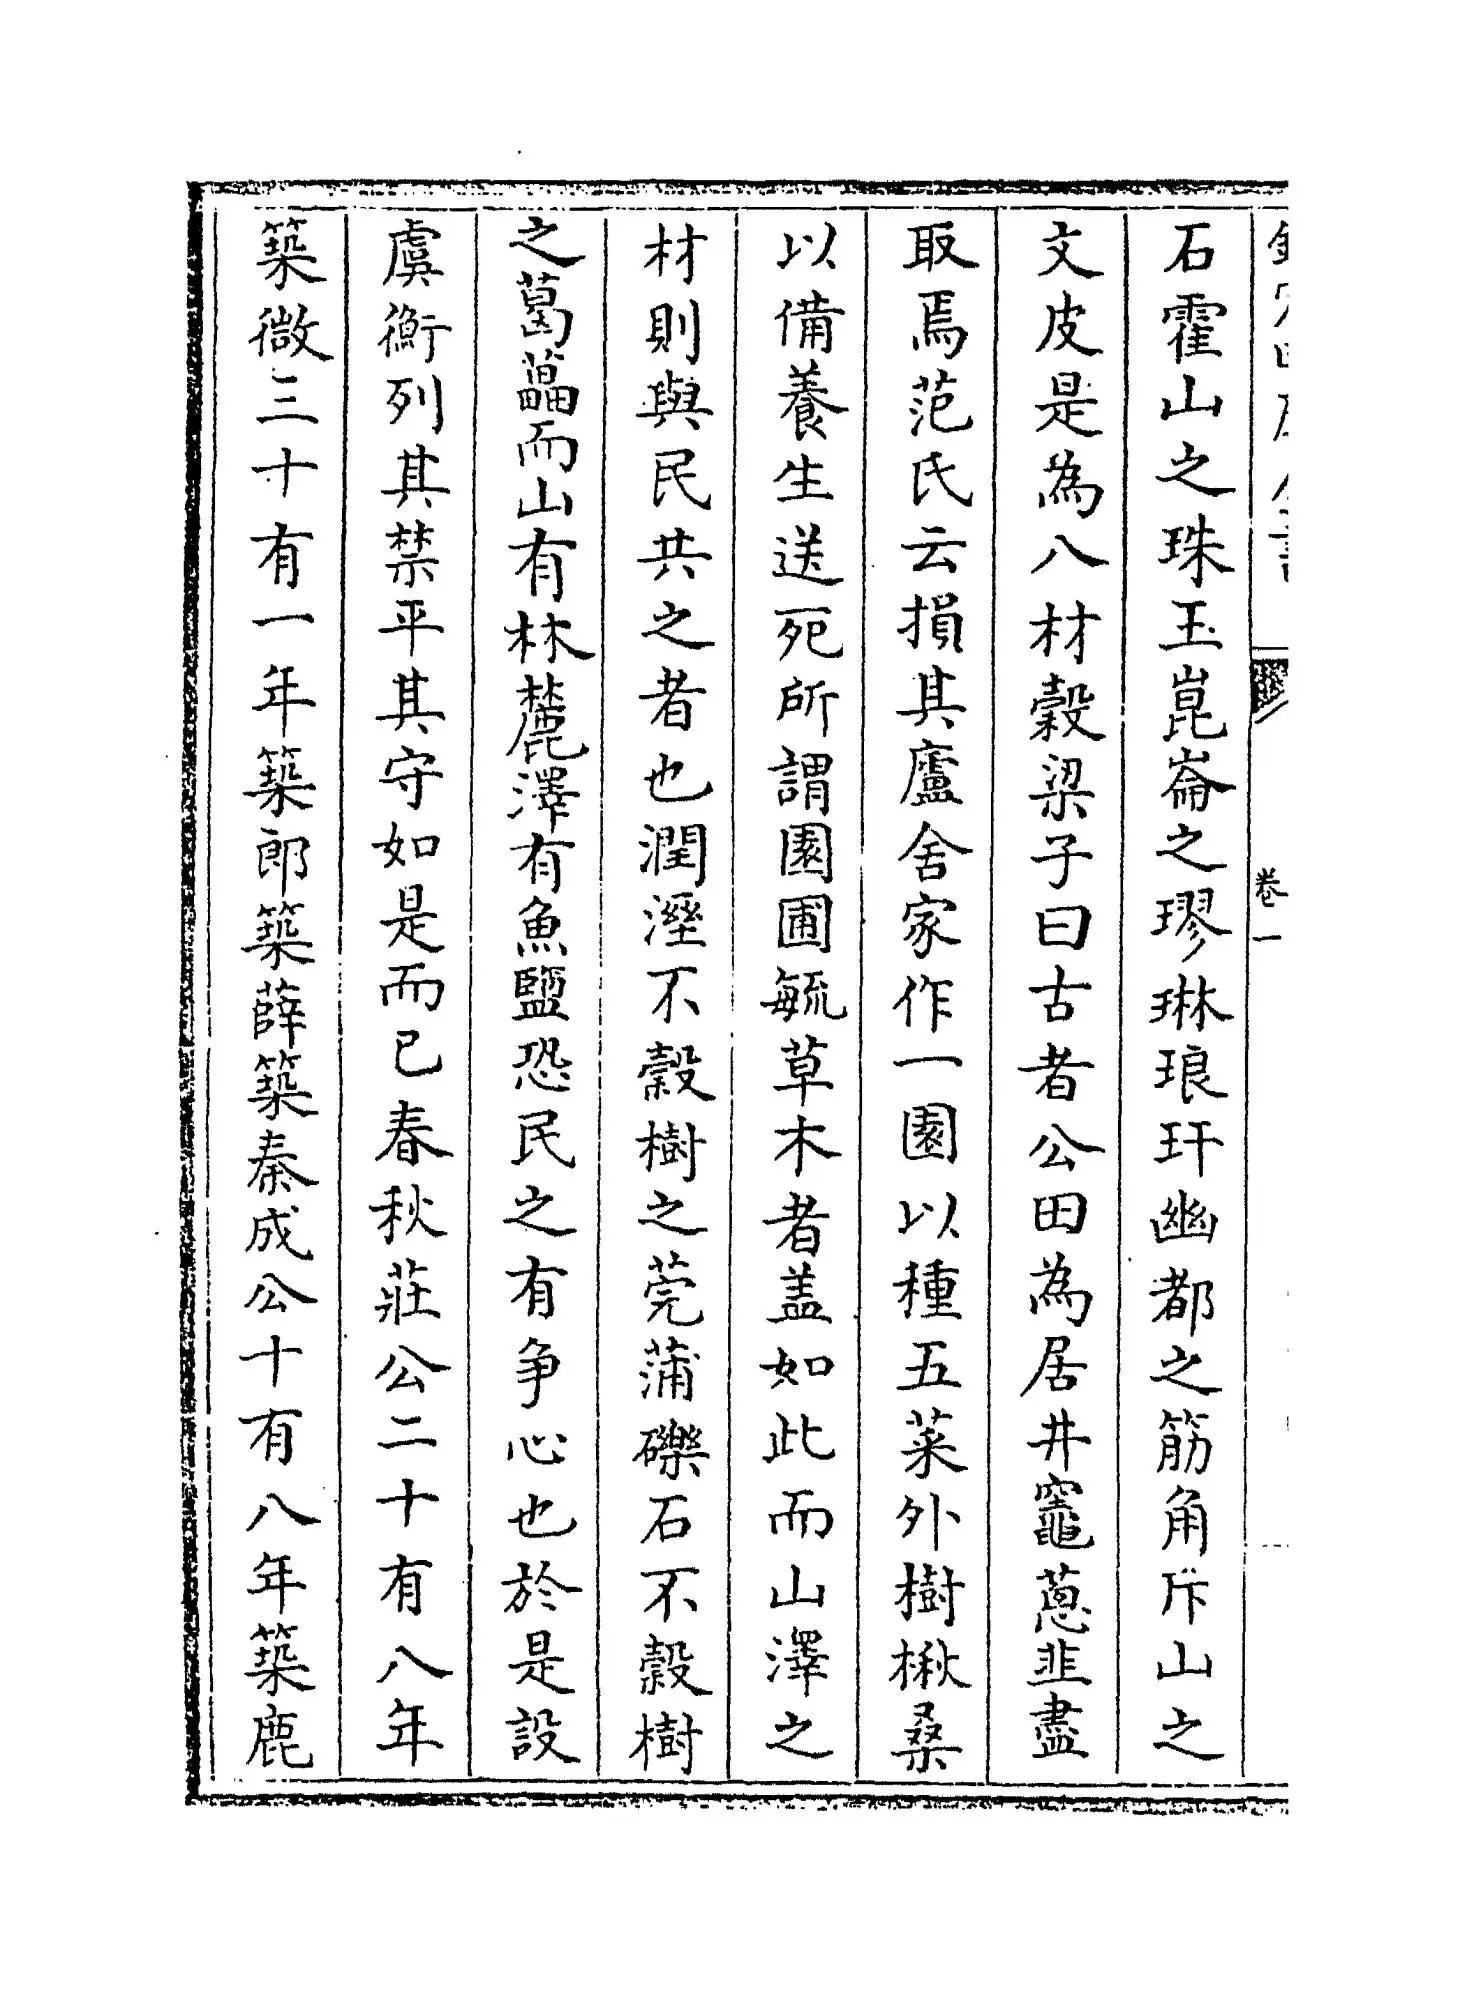 石霍山之珠玉崑崙之璆琳琅玕幽都之筋角斥山之
文皮是為八材穀梁子曰古者公田為居井竈蔥韭盡
取焉范氏云損其廬舍家作一園以種五菜外樹楸桑
以備養生送死所謂園圃毓草木者盖如此而山澤之
材則與民共之者也潤溼不穀樹之莞蒲礫石不穀樹
之葛藟而山有林麓澤有魚鹽恐民之有争心也於是設
虞衡列其禁平其守如是而已春秋莊公二十有八年
築微三十有一年築郎築薛築秦成公十有八年築鹿
卷一